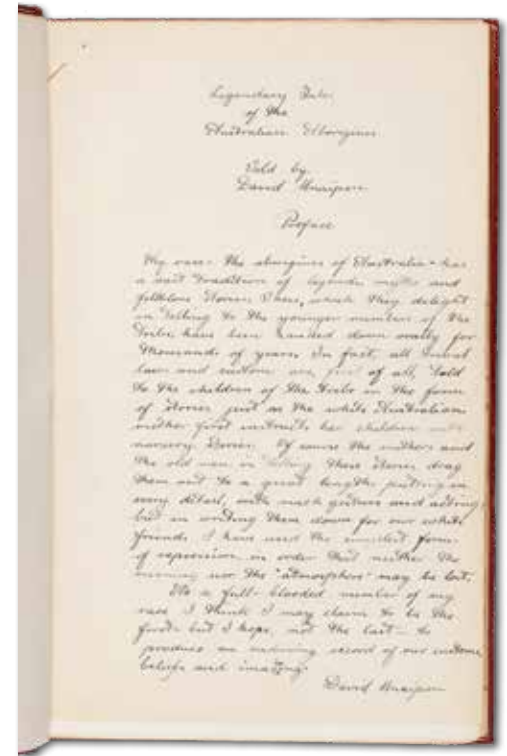 Legendary Tales
of the
Australian Aborigines
Told by
David Unaipon
Preface
My race - the aborigines of Australia - has
a vast tradition of legends myths and
folklore stories. These, which they delight
in telling to the younger members of the
tribe have been handed down orally for
thousands of years. In fact, all tribal
laws and customs are, first of all, told
to the children of the tribe in the form
of stories just as the white Australian
mother first instructs her children with
nursery stories. Of course the mothers and
the old men in telling these stories drag
them out to a great length putting in
every detail, with much gesture and acting,
but in writing them down for our white
friends I have used the simplest form
of expression in order that neither the
meaning nor the "atmosphere" may be lost.
As a full-blooded member of my
race I think I may claim to be the
first - but I hope, not the last - to
produce an enduring record of our customs
beliefs and imaginings.
David Unaipon